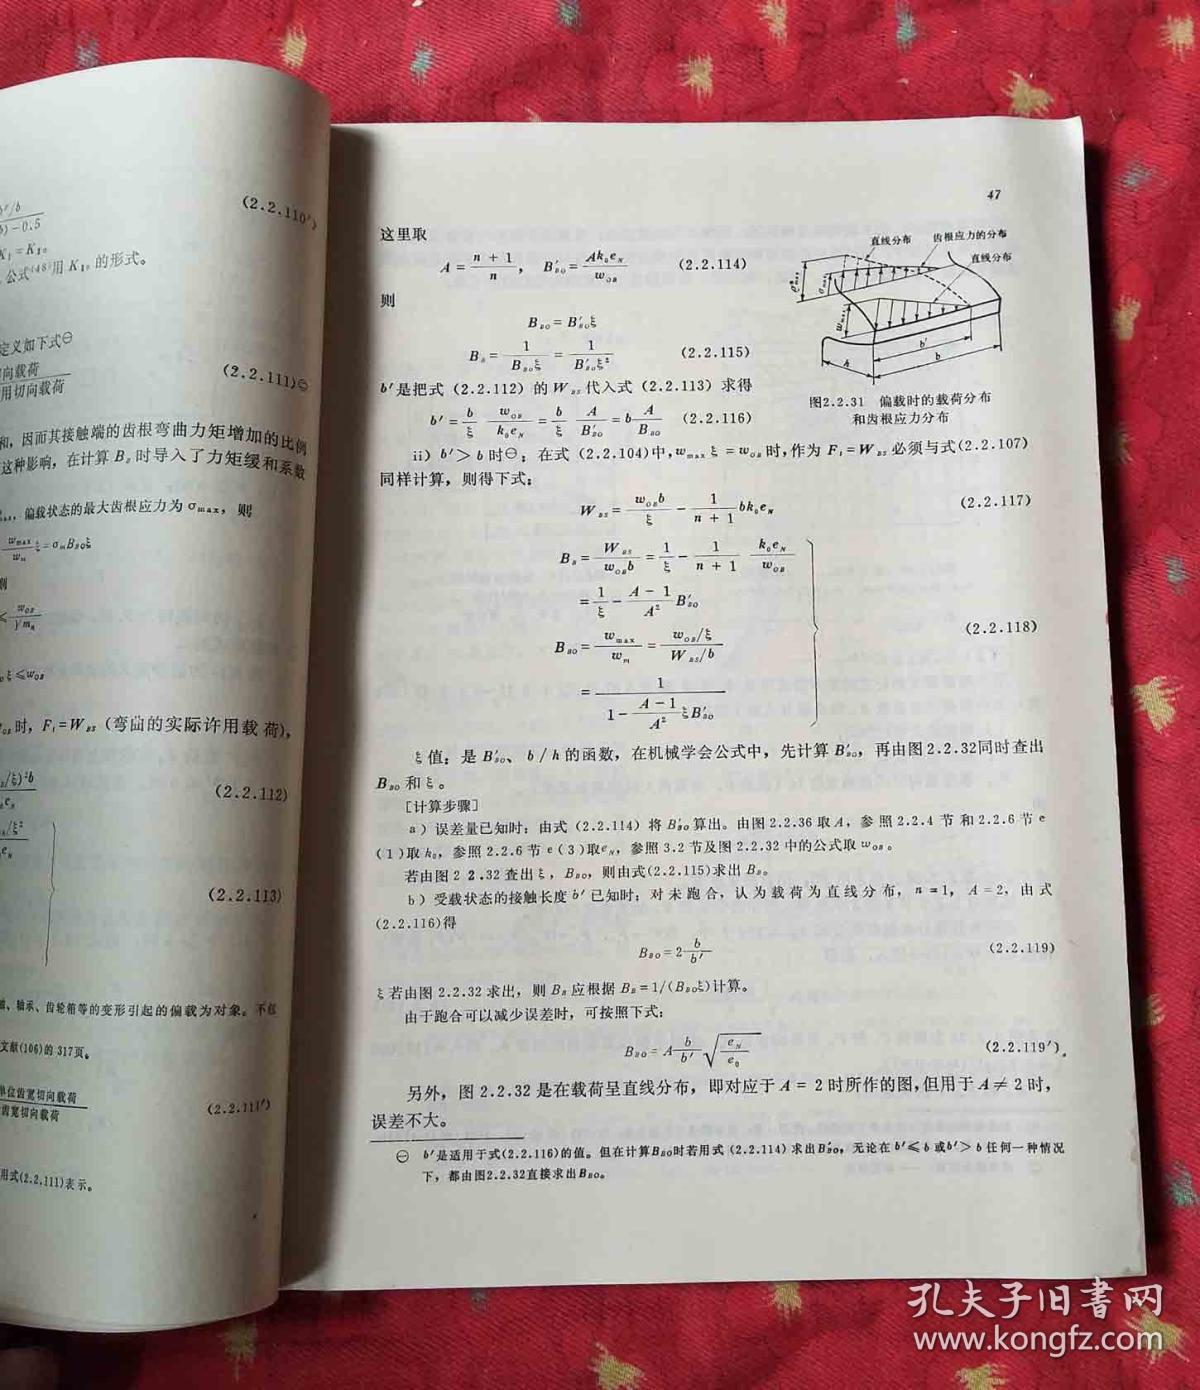 (2.2.110′)
的形式。
定义如下式㊀
向载荷
用切向载荷
(2.2.111)㊀
和，因而其接触端的齿根弯曲力矩增加的比例
这种影响，在计算 B_s 时导入了力矩缓和系数
偏载状态的最大齿根应力为 σ_max，则
时，F_t=W_BS (弯曲的实际许用载荷)，
(2.2.112)
(2.2.113)
轴承、齿轮箱等的变形引起的偏载为对象。不包
文献(106)的 317页。
单位齿宽切向载荷
齿宽切向载荷
(2.2.111′)
用式(2.2.111)表示。
47
这里取
A = (n + 1)/n， B′_BO = Ak_0e_N/w_OB (2.2.114)
则
B_BO = B′_BOξ
B_B = 1/(B_BOξ) = 1/(B′_BOξ²) (2.2.115)
b′是把式 (2.2.112) 的 W_BS 代入式 (2.2.113) 求得
b′ = b/ξ w_OB/(k_0e_N) = b/ξ A/B′_BO = b A/B_BO (2.2.116)
直线分布
齿根应力的分布
直线分布
w_max
b′
b
h
图2.2.31 偏载时的载荷分布
和齿根应力分布
ii) b′＞b 时㊀：在式 (2.2.104)中，w_max ξ = w_OB 时，作为 F_t = W_BS 必须与式(2.2.107)
同样计算，则得下式：
W_BS = w_OB b/ξ − 1/(n + 1) bk_0e_N (2.2.117)
B_B = W_BS/(w_OB b) = 1/ξ − 1/(n + 1) k_0e_N/w_OB
= 1/ξ − (A − 1)/A² B′_BO
B_BO = w_max/w_m = (w_OB/ξ)/(W_BS/b)
= 1/(1 − (A − 1)/A² ξB′_BO)
(2.2.118)
ξ 值：是 B′_BO、b/h 的函数，在机械学会公式中，先计算 B′_BO，再由图2.2.32同时查出
B_BO 和 ξ。
［计算步骤］
a）误差量已知时：由式 (2.2.114) 将 B′_BO 算出。由图2.2.36 取 A，参照 2.2.4 节和 2.2.6 节 e
(1)取 k_0，参照 2.2.6 节 e (3)取e_N，参照 3.2 节及图 2.2.32 中的公式取 w_OB。
若由图 2 2.32 查出 ξ，B_BO，则由式(2.2.115)求出 B_B。
b）受载状态的接触长度 b′ 已知时：对未跑合，认为载荷为直线分布，n = 1，A = 2，由式
(2.2.116)得
B_BO = 2 b/b′ (2.2.119)
ξ 若由图 2.2.32 求出，则 B_B 应根据 B_B = 1/(B_BOξ)计算。
由于跑合可以减少误差时，可按照下式：
B_BO = A b/b′ √(e_N/e_0) (2.2.119′)。
另外，图 2.2.32 是在载荷呈直线分布，即对应于 A = 2 时所作的图，但用于 A ≠ 2 时，
误差不大。
㊀ b′是适用于式(2.2.116)的值。但在计算B_BO时若用式 (2.2.114) 求出B′_BO，无论在 b′≤b 或b′＞b 任何一种情况
下，都由图2.2.32直接求出B_BO。
孔夫子旧書网
www.kongfz.com